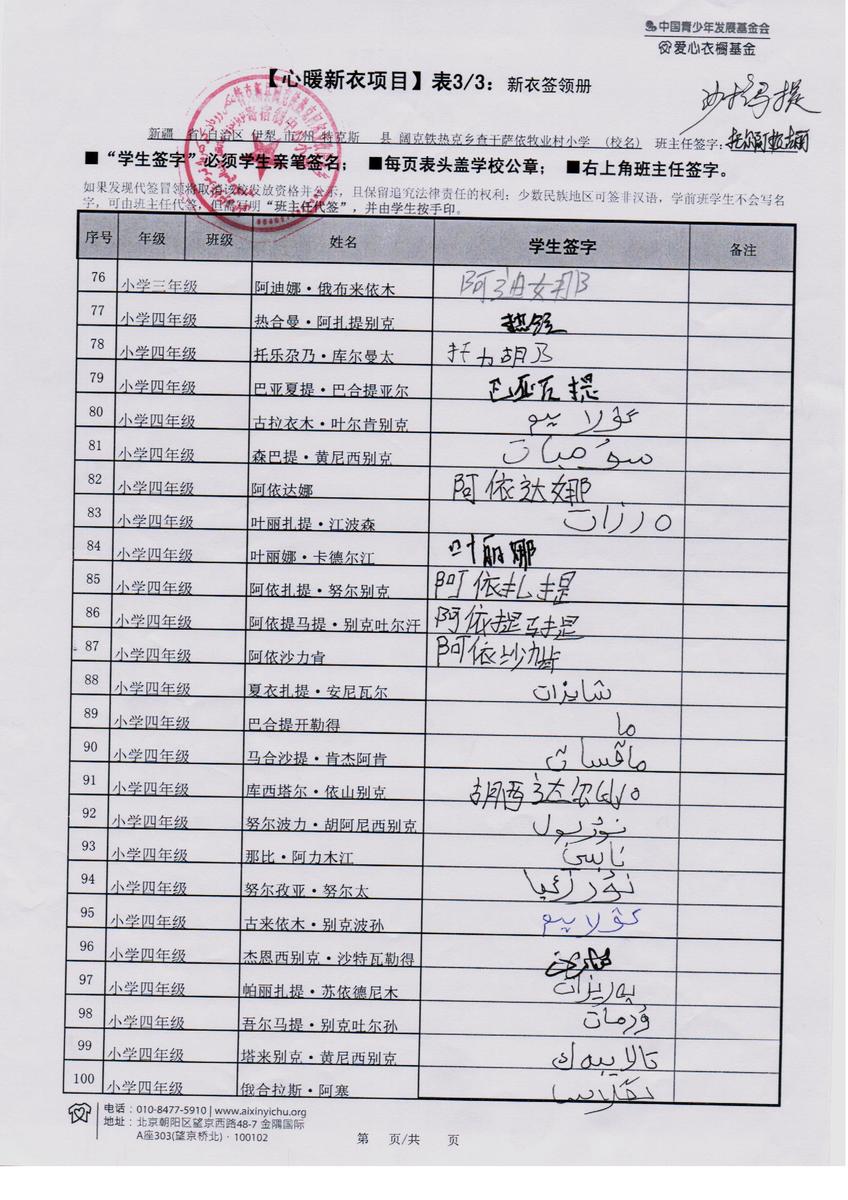 中国青少年发展基金会
爱心衣橱基金
【心暖新衣项目】表3/3：新衣签领册
新疆 省/自治区 伊犁 市/州 特克斯 县 阔克铁热克乡查干萨依牧业村小学 （校名） 班主任签字：
■“学生签字”必须学生亲笔签名； ■每页表头盖学校公章； ■右上角班主任签字。
如果发现代签冒领将取消该校发放资格并公示，且保留追究法律责任的权利；少数民族地区可签非汉语，学前班学生不会写名
字，可由班主任代签，但需写明“班主任代签”，并由学生按手印。
序号 年级 班级 姓名 学生签字 备注
76 小学三年级 阿迪娜·俄布来依木 阿迪娜
77 小学四年级 热合曼·阿扎提别克
78 小学四年级 托乐尕乃·库尔曼太 托力胡乃
79 小学四年级 巴亚夏提·巴合提亚尔
80 小学四年级 古拉衣木·叶尔肯别克 گۇلايىم
81 小学四年级 森巴提·黄尼西别克 سۇمبات
82 小学四年级 阿依达娜 阿依达娜
83 小学四年级 叶丽扎提·江波森
84 小学四年级 叶丽娜·卡德尔江 叶丽娜
85 小学四年级 阿依扎提·努尔别克 阿依扎提
86 小学四年级 阿依提马提·别克吐尔汗 阿依提马提
87 小学四年级 阿依沙力肯 阿依沙力肯
88 小学四年级 夏衣扎提·安尼瓦尔 شايزات
89 小学四年级 巴合提开勒得 ما
90 小学四年级 马合沙提·肯杰阿肯 ماقسات
91 小学四年级 库西塔尔·依山别克
92 小学四年级 努尔波力·胡阿尼西别克 نۇربول
93 小学四年级 那比·阿力木江
94 小学四年级 努尔孜亚·努尔太
95 小学四年级 古来依木·别克波孙 گۇلايىم
96 小学四年级 杰恩西别克·沙特瓦勒得
97 小学四年级 帕丽扎提·苏依德尼木 پەريزات
98 小学四年级 吾尔马提·别克吐尔孙 ۇرمات
99 小学四年级 塔来别克·黄尼西别克
100 小学四年级 俄合拉斯·阿塞
电话：010-8477-5910 | www.aixinyichu.org
地址：北京朝阳区望京西路48-7 金隅国际
A座303(望京桥北)·100102
第 页/共 页